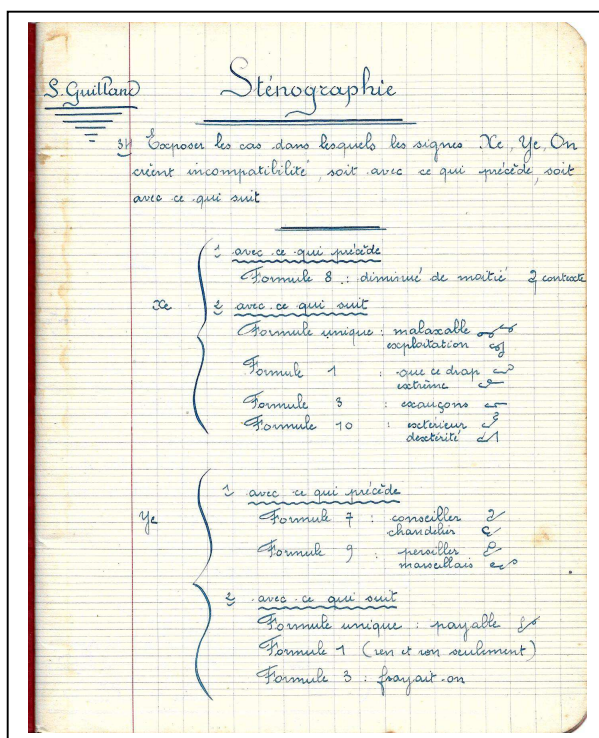 Sténographie
S. Guilland
3) Exposer les cas dans lesquels les signes Xe, Ye, On
créent incompatibilité, soit avec ce qui précède, soit
avec ce qui suit
1 avec ce qui précède
Formule 8 : diminué de moitié contexte
Xe
2 avec ce qui suit
Formule unique : malaxable
exploitation
Formule 1 : que ce drap
extrême
Formule 3 : exauçons
Formule 10 : extérieur
dextérité
1 avec ce qui précède
Ye
Formule 7 : conseiller
chandelier
Formule 9 : persiller
marseillais
2 avec ce qui suit
Formule unique : payable
Formule 1 (ren et ron seulement)
Formule 3 : frayait-on